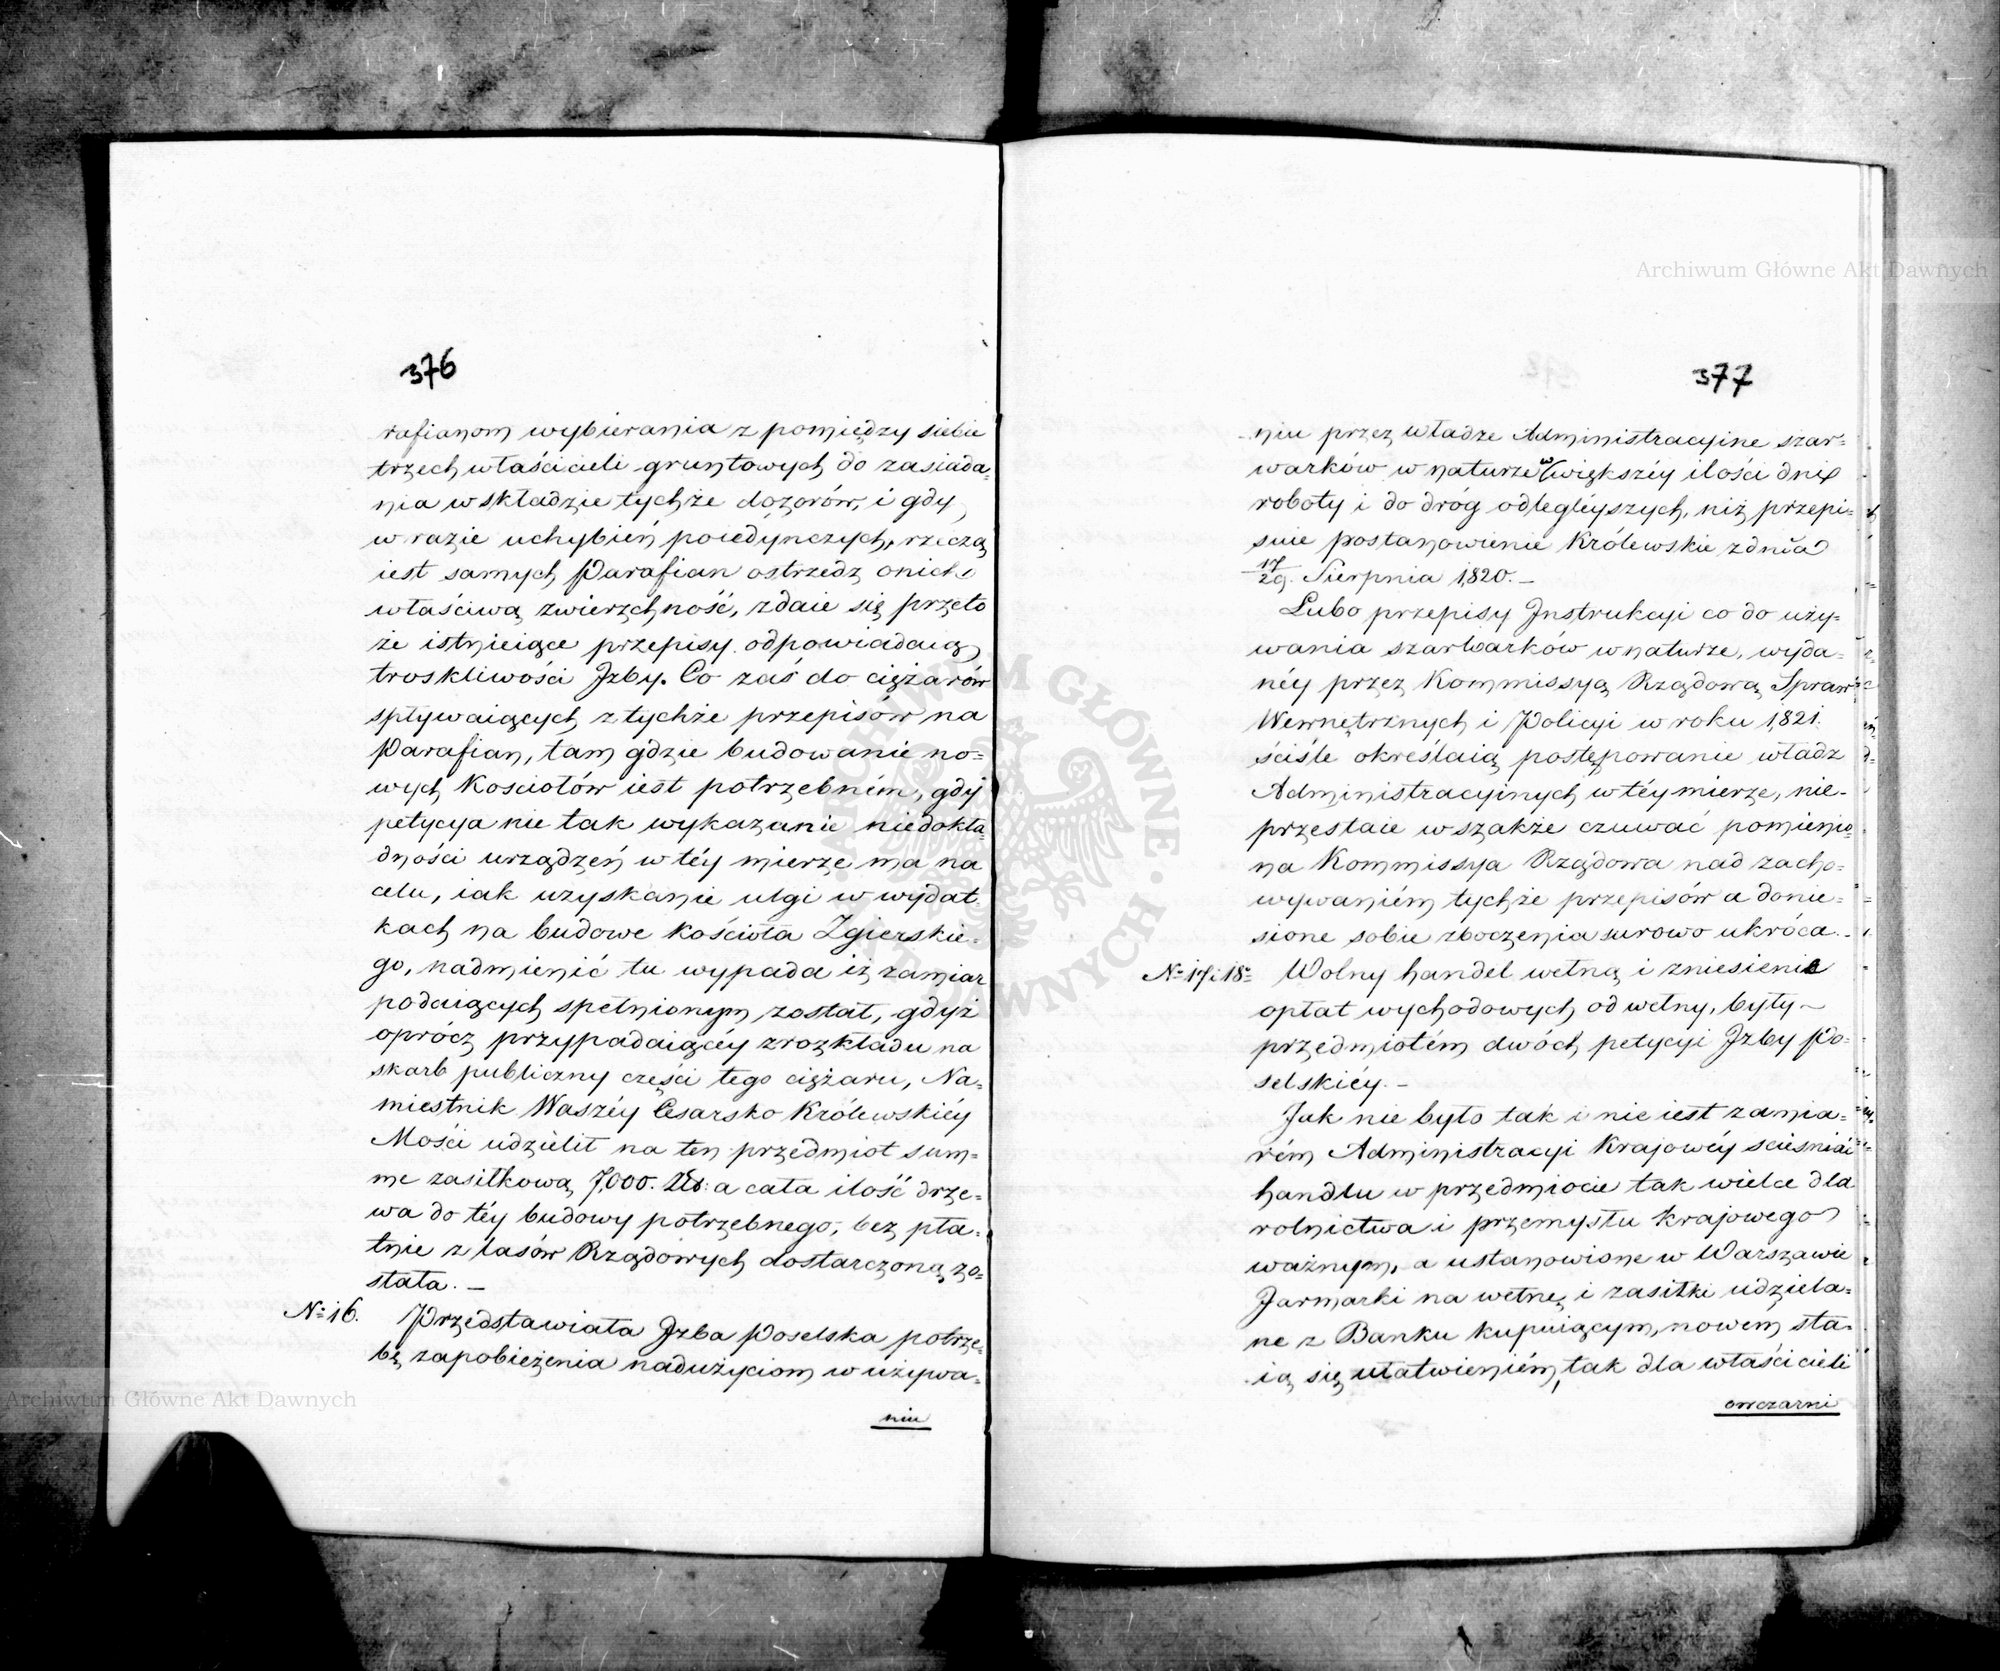 376
rafianom wybierania z pomiędzy siebie
trzech właścicieli gruntowych do zasiada=
nia w składzie tychże dozorów, i gdy
w razie uchybień poiedynczych, rzeczą
iest samych Parafian ostrzedz o nich
właściwą zwierzchność, zdaie się przeto
że istnieiące przepisy odpowiadaią
troskliwości Jzby. Co zaś do ciężarów
spływaiących z tychże przepisów na
Parafian, tam gdzie budowanie no=
wych Kościołów iest potrzebném, gdy
petycya nie tak wykazanie niedokła=
dności urządzeń w téy mierze ma na
celu, iak uzyskanie ulgi w wydat=
kach na budowe kościoła Zgierskie=
go, nadmienić tu wypada iż zamiar
podaiących spełnionym został, gdyż
oprócz przypadaiącéy z rozkładu na
skarb publiczny części tego ciężaru, Na=
miestnik Waszéy Cesarsko Królewskiéy
Mości udzielił na ten przedmiot sum=
me zasiłkową 7,000. Zł: a cała ilość drze=
wa do téy budowy potrzebnego, bez pła=
tnie z lasów Rządowych dostarczoną zo=
stała. —
№ 16. Przedstawiała Jzba Poselska potrze=
bę zapobieżenia nadużyciom w używa=
niu
377
niu przez władze Administracyine szar=
warków w naturze w większéy ilości dni
roboty i do dróg odlegléyszych, niż przepi=
suie postanowienie Królewskie z dnia
17/29. Sierpnia 1820. —
Lubo przepisy Jnstrukcyi co do uży=
wania szarwarków w naturze, wyda=
néy przez Kommissyą Rządową Spraw
Wewnętrznych i Policyi w roku 1821.
ściśle określaią postępowanie władz
Administracyinych w téy mierze, nie=
przestaie wszakże czuwać pomienio=
na Kommissya Rządowa nad zacho=
wywaniém tychże przepisów a donie=
sione sobie zboczenia surowo ukróca. —
№ 17 i 18 Wolny handel wełną i zniesienie
opłat wychodowych od wełny, były —
przedmiotém dwóch petycyi Jzby Po=
selskiéy. —
Jak nie było tak i nie iest zamia=
rém Administracyi Krajowéy ścieśniać
handlu w przedmiocie tak wielce dla
rolnictwa i przemysłu krajowego
ważnym, a ustanowione w Warszawie
Jarmarki na wełnę i zasiłki udziela=
ne z Banku kupuiącym, nowem sta=
ią się ułatwieniém, tak dla właścicieli
owczarni
Archiwum Główne Akt Dawnych
Archiwum Główne Akt Dawnych
ARCHIWUM GŁÓWNE AKT DAWNYCH